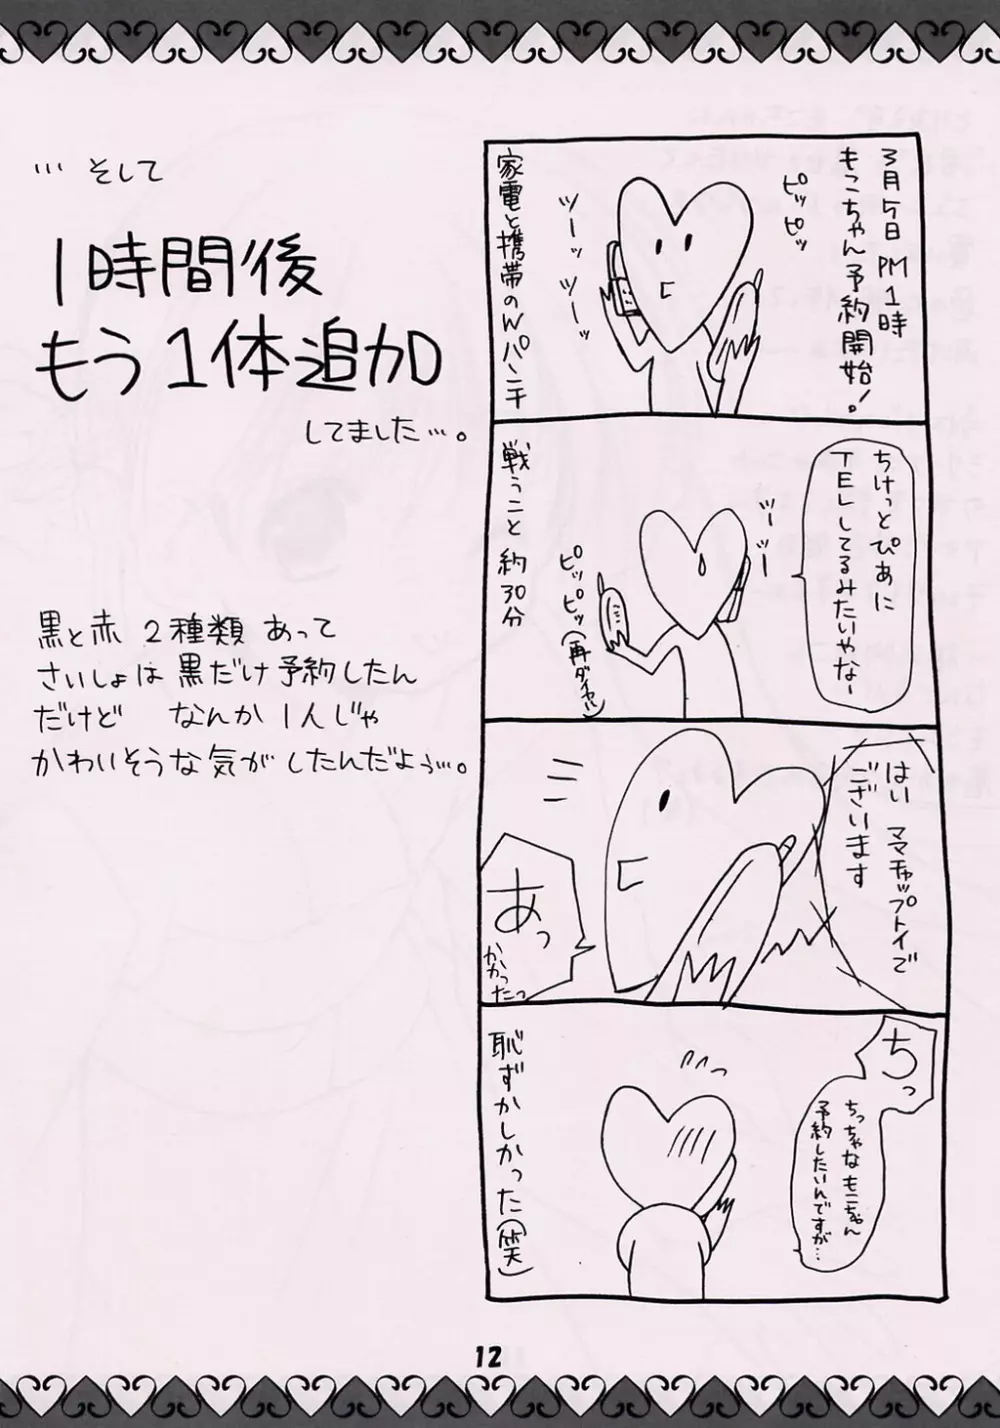 3月5日 PM1時
もこちゃん予約開始!
ピッピッ
ツーッツーッ
家電と携帯のWパンチ
ちけっとぴあに
TELしてるみたいやなー
ツーツー
ピッピッ(再ダイヤル)
戦うこと 約30分
はい ママチャップトイで
ございます
あっ
かかったっ
ちっ
ちっちゃな もこちゃん
予約したいんですが…
恥ずかしかった(笑)
… そして
1時間後
もう1体追加
してました…。
黒と赤 2種類 あって
さいしょは 黒だけ予約したん
だけど なんか 1人じゃ
かわいそうな気が したんだよぅ…。
12